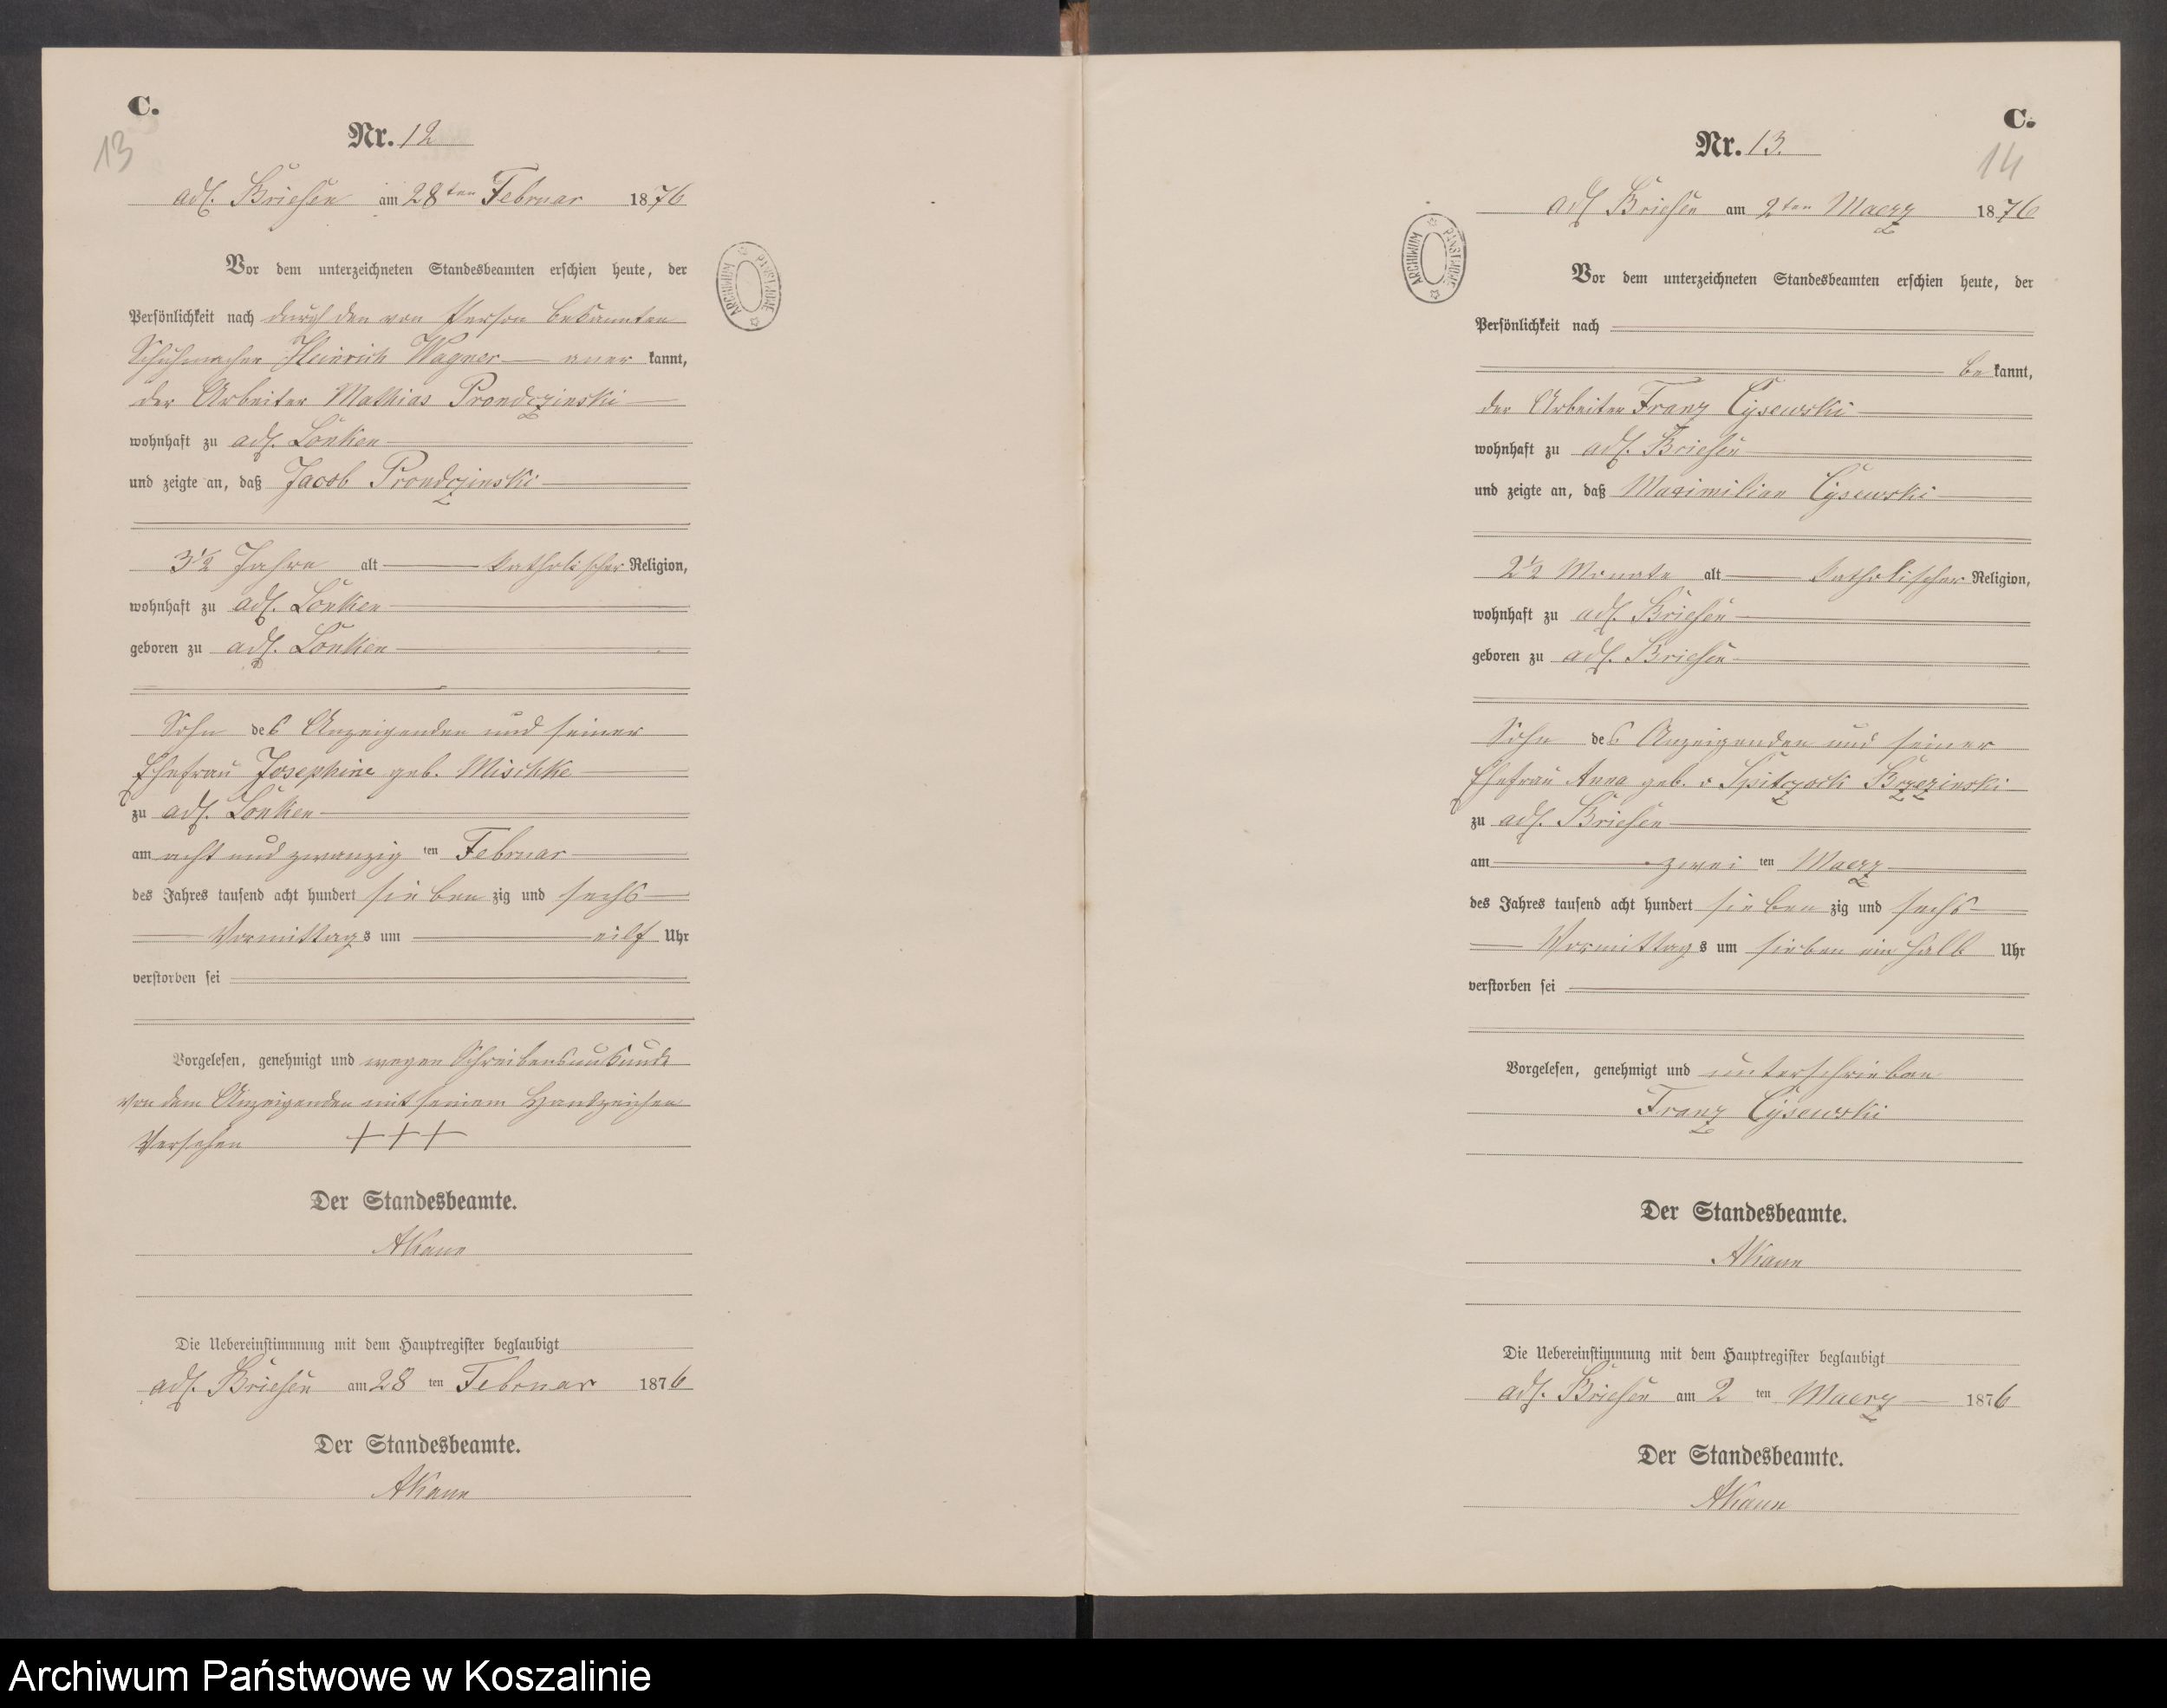 C.
13
Nr. 12
adl. Briesen am 28ten Februar 1876
Vor dem unterzeichneten Standesbeamten erschien heute, der
Persönlichkeit nach durch den von Person bekannten
Schuhmacher Heinrich Wagner aner kannt,
der Arbeiter Mathias Prondczinski
wohnhaft zu adl. Lonken
und zeigte an, daß Jacob Prondczinski
3½ Jahre alt katholischer Religion,
wohnhaft zu adl. Lonken
geboren zu adl. Lonken
Sohn des Anzeigenden und seiner
Ehefrau Josephine geb. Mischke
zu adl. Lonken
am acht und zwanzig ten Februar
des Jahres tausend acht hundert sieben zig und sechs
Vormittags um eilf Uhr
verstorben sei
Vorgelesen, genehmigt und wegen Schreibensunkunde
von dem Anzeigenden mit seinem Handzeichen
Versehen +++
Der Standesbeamte.
AKaun
Die Uebereinstimmung mit dem Hauptregister beglaubigt
adl. Briesen am 28 ten Februar 1876
Der Standesbeamte.
AKaun
ARCHIWUM PAŃSTWOWE
C.
14
Nr. 13.
adl Briesen am 2ten Maerz 1876
Vor dem unterzeichneten Standesbeamten erschien heute, der
Persönlichkeit nach
be kannt,
der Arbeiter Franz Cysewski
wohnhaft zu adl. Briesen
und zeigte an, daß Maximilian Cysewski
2½ Monate alt katholischer Religion,
wohnhaft zu adl. Briesen
geboren zu adl. Briesen
Sohn des Anzeigenden und seiner
Ehefrau Anna geb. v Spitczack Brzezinski
zu adl. Briesen
am zwei ten Maerz
des Jahres tausend acht hundert sieben zig und sechs
Vormittags um sieben ein halb Uhr
verstorben sei
Vorgelesen, genehmigt und unterschrieben
Franz Cysewski
Der Standesbeamte.
AKaun
Die Uebereinstimmung mit dem Hauptregister beglaubigt
adl. Briesen am 2 ten Maerz 1876
Der Standesbeamte.
AKaun
ARCHIWUM PAŃSTWOWE
Archiwum Państwowe w Koszalinie